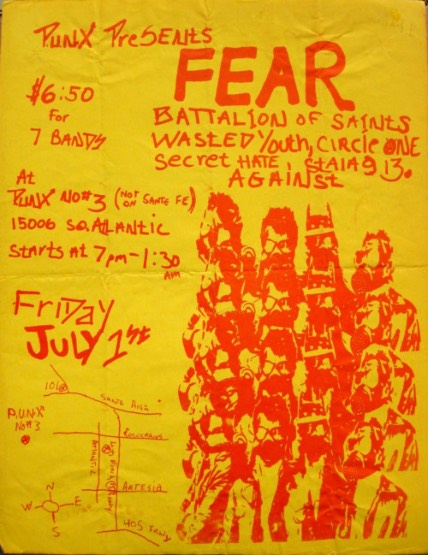 PUNX PreSENTS
FEAR
$6:50
For
7 BANDS
BATTALION OF SAINTS
WASTED Youth, CIRCLE ONE
Secret HATE, StAlAg 13.
AGAINST
At
PUNX NO# 3 (NOT ON SANTE FE)
15006 SO. AtLANTIC
StARtS At 7pm-1:30 AM
FRIDAY
JULY 1st
P.U.N.X
NO# 3
ROSECRANS
ARTESIA
N
W
E
S
405 FRWY